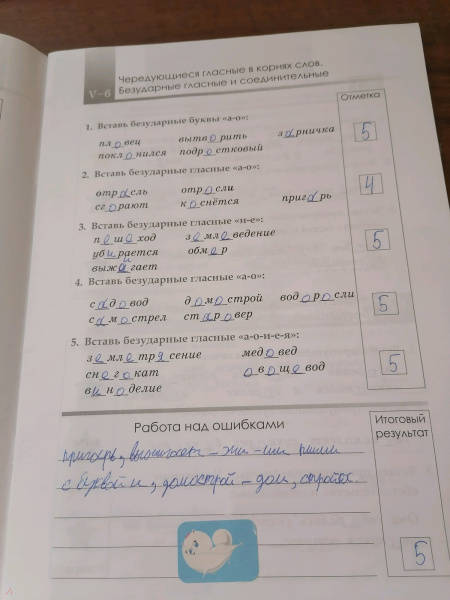 V–6
Чередующиеся гласные в корнях слов.
Безударные гласные и соединительные
Отметка
1. Вставь безударные буквы «а-о»:
пловец вытворить зарничка
поклонился подростковый
5
2. Вставь безударные гласные «а-о»:
отрасль отросли
сгорают коснётся пригарь
4
3. Вставь безударные гласные «и-е»:
пешеход землеведение
убирается обмер
выжигает
5
4. Вставь безударные гласные «а-о»:
садовод домострой водоросли
самострел старовер
5
5. Вставь безударные гласные «а-о-и-е-я»:
землетрясение медовед
снегокат овощевод
виноделие
5
Работа над ошибками
Итоговый
результат
пригарь, – жи – ши пиши
с буквой и, домострой – дом, строить.
5